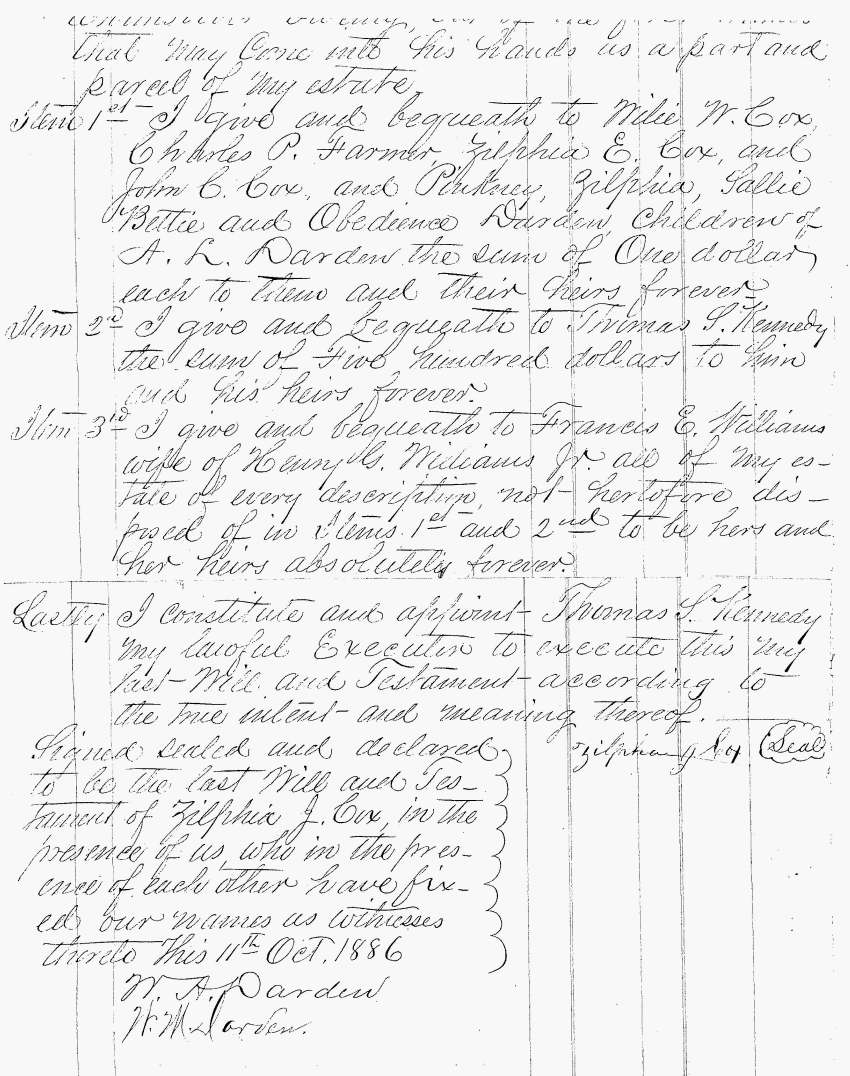 that may Come into his hands as a part and
parcel of my estate.
Item 1st I give and bequeath to Wilie W. Cox,
Charles P. Farmer, Zilphia E. Cox, and
John C. Cox, and Pinkney, Zilphia, Sallie
Bettie and Obedience Darden, children of
A. L. Darden the sum of One dollar,
each to them and their heirs forever.
Item 2nd I give and bequeath to Thomas S. Kennedy
the sum of Five hundred dollars to him
and his heirs forever.
Item 3rd I give and bequeath to Francis E. Williams
wife of Henry G. Williams Jr. all of my es-
tate of every description, not hertofore dis-
posed of in Items 1st and 2nd to be hers and
her heirs absolutely forever.
Lastly I constitute and appoint Thomas S. Kennedy
my lawful Executor to execute this my
last Will and Testament according to
the true intent and meaning thereof.
Zilphia J Cox (Seal)
Signed sealed and declared
to be the last Will and Tes-
tament of Zilphia J. Cox, in the
presence of us, who in the pres-
ence of each other have fix-
ed our names as witnesses
thereto This 11th Oct. 1886
W. A. Darden
W. M. Darden.